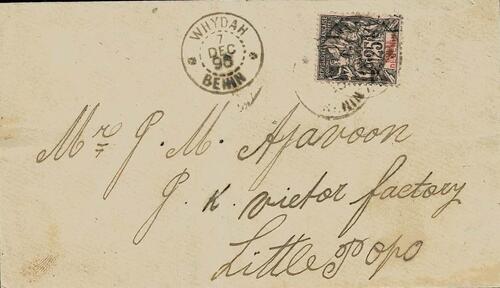 WHYDAH
7
DEC
96
BENIN
25
Mr J. M. Ajavoon
J. K. Victor factory
Little Popo